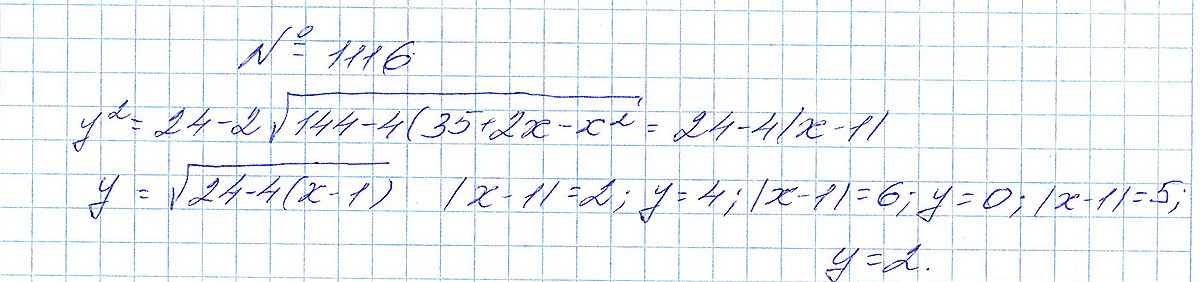 № 1116
y² = 24-2√144-4(35+2x-x² = 24-4|x-1|
y = √24-4(x-1) |x-1|=2; y=4; |x-1|=6; y=0; |x-1|=5;
y=2.